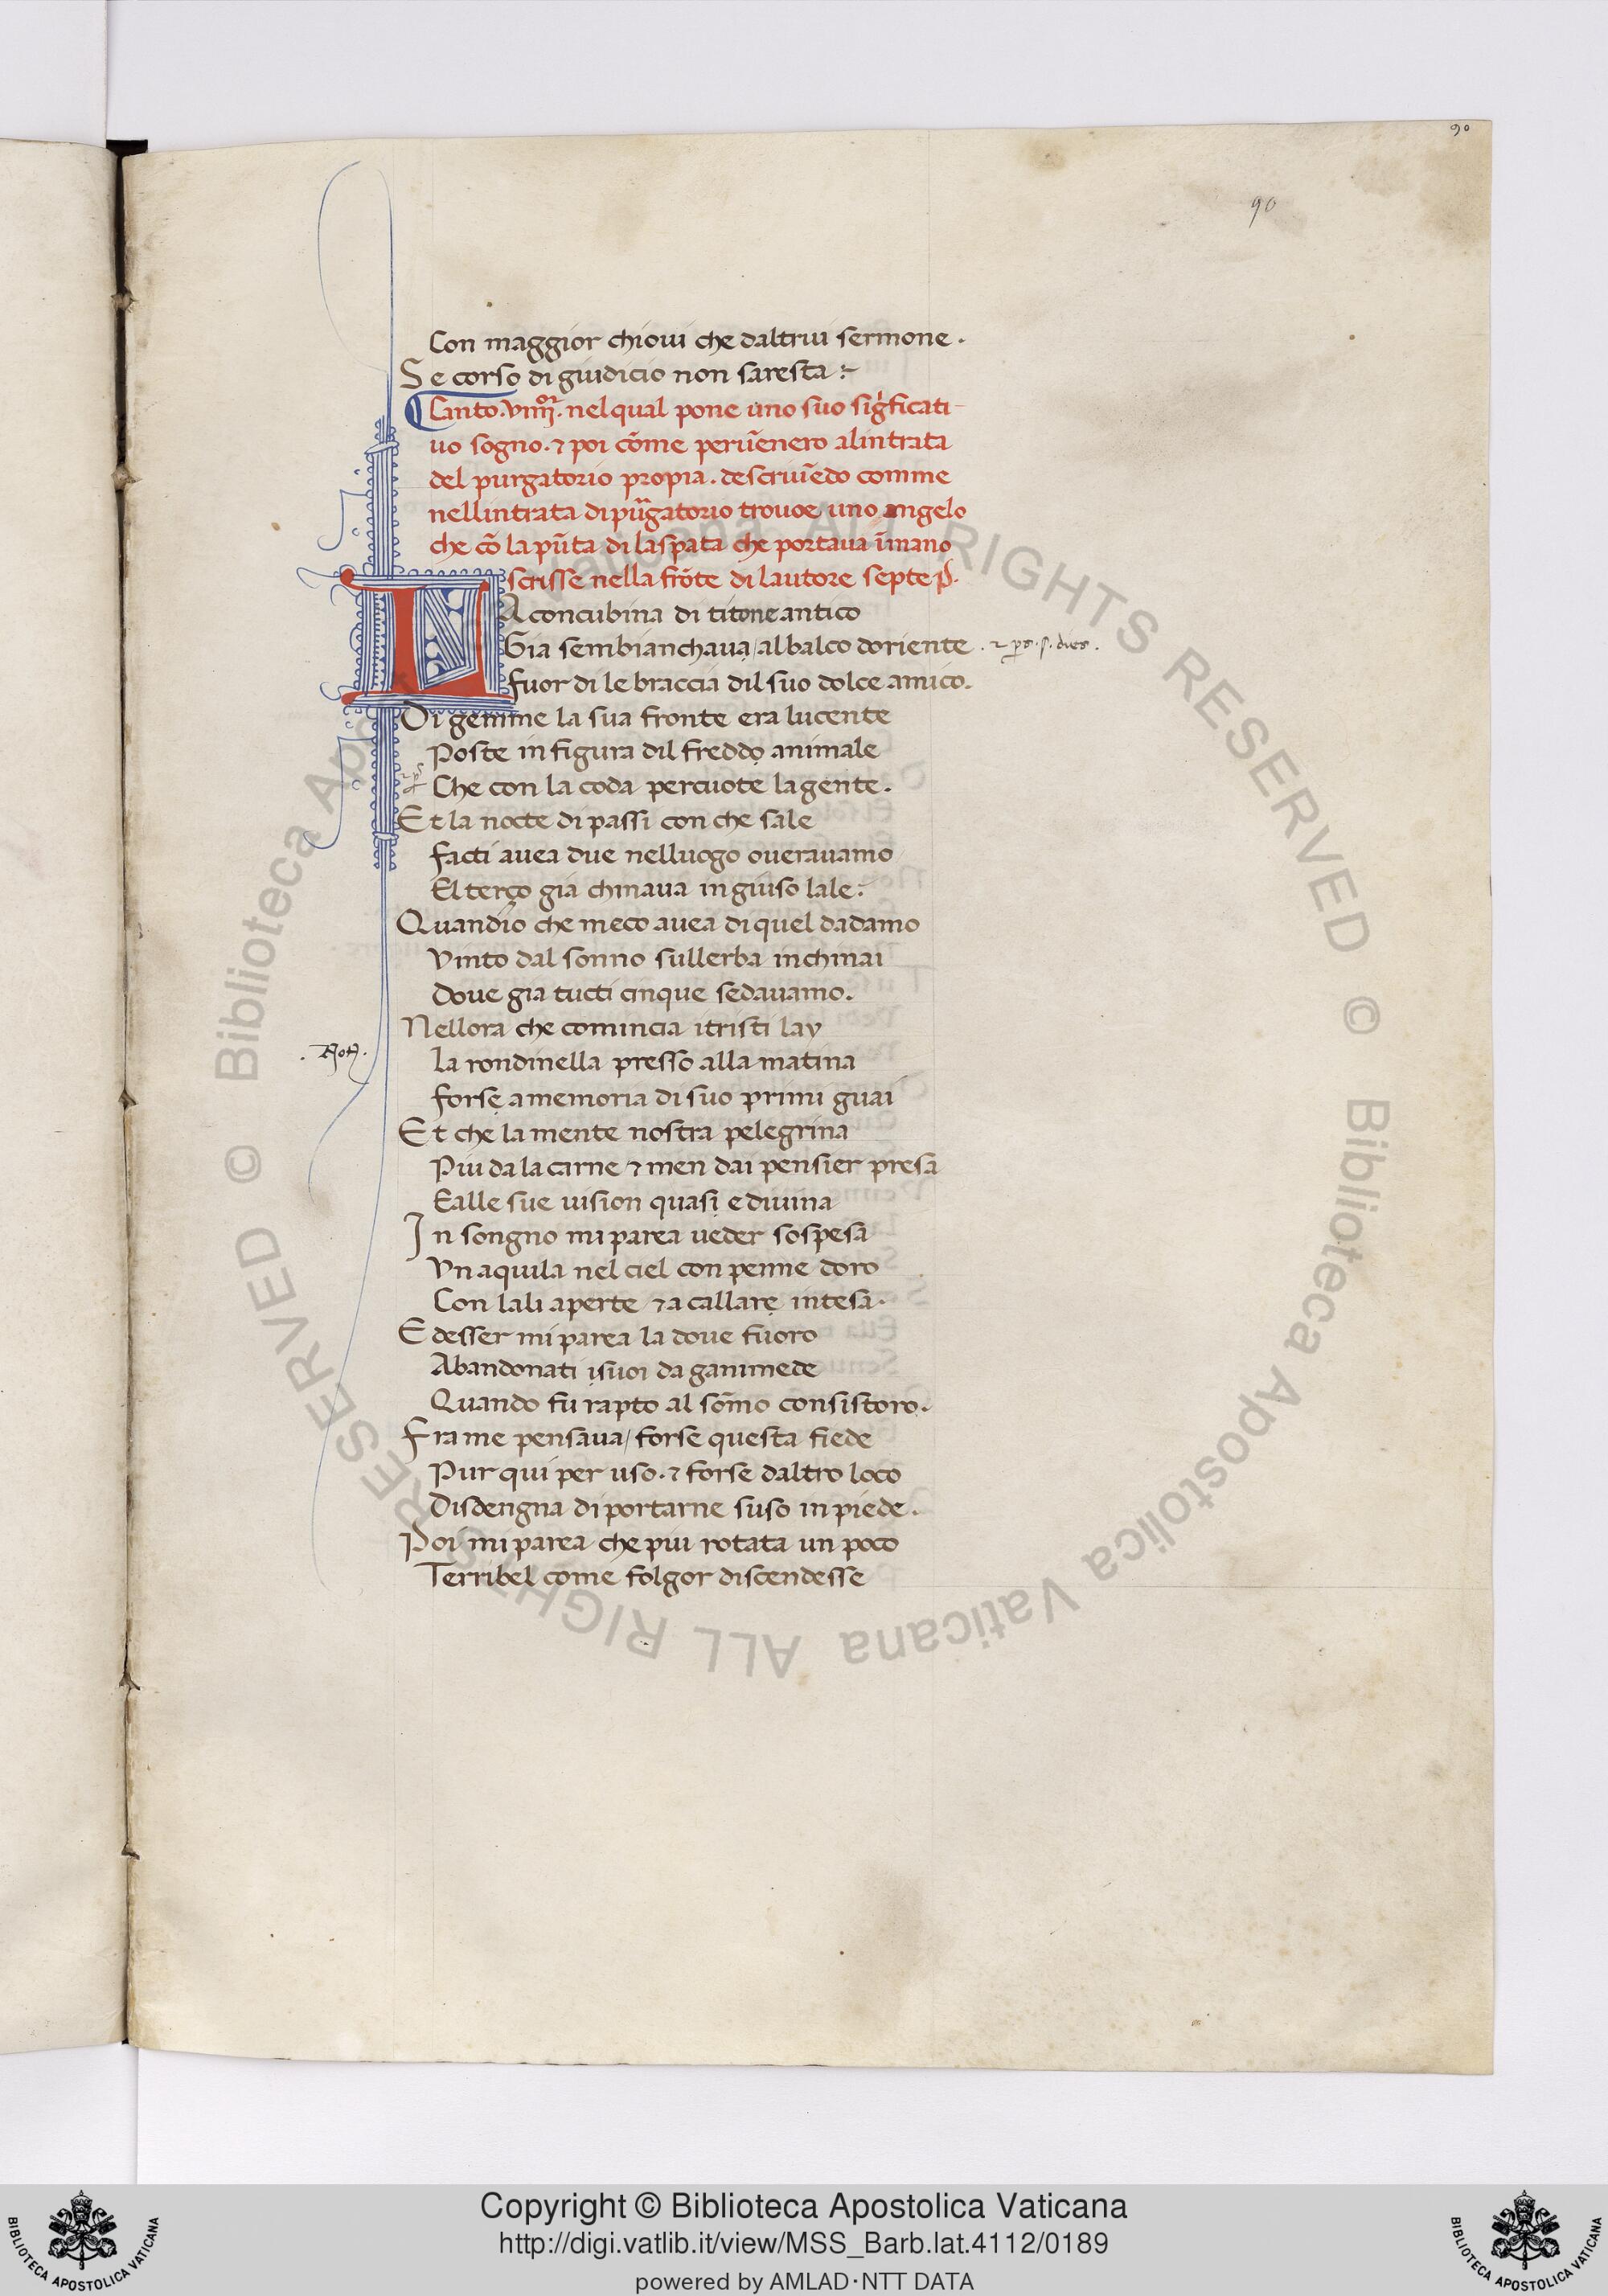 90
90
Con maggior chioui che daltrui sermone .
Se corso di giudicio non saresta :~
Canto . vıııȷ͞ᵒʳ . nel qual pone uno suo sig͛ficati-
uo sogno . ⁊ poi cōme peruēnero alintrata
del purgatorio propia . descriuēdo comme
nellintrata di pūgatorio trouoe uno angelo
che cō la pūta di laspata che portaua īmano
scrisse nella frōte di lautore septe p .
LA concubina di titone antico
Gia sembianchaua / albalco doriente .
fuor di le braccia dil suo dolce amico .
Di gemme la sua fronte era lucente
Poste in figura dil freddo animale
Che con la coda percuote la gente .
Et la nocte di passi con che sale
facti auea due nelluogo oue rauamo
El terço gia chinaua in giuso lale :
Quandio che meco auea di quel dadamo
Vinto dal sonno sullerba inchinai
Doue gia tucti cinque sedauamo .
Nellora che comincia i tristi lay
.Nota.
La rondinella presso alla matina
forse a memoria di suo primi guai
Et che la mente nostra pelegrina
Piu da la carne ⁊ men dai pensier presa
Ealle sue uision quasi e diuina
In songno mi parea ueder sospesa
Vn aquila nel ciel con penne doro
Con lali aperte ⁊ a callare intesa .
Edesser mi parea la doue fuoro
Abandonati isuoi da ganimede
Quando fu rapto al sōmo consistoro .
Fra me pensaua / forse questa fiede
Pur qui per uso . ⁊ forse daltro loco
Disdengna di portarne suso in piede .
Poi mi parea che piu rotata un poco
Terribel come folgor discendesse
© Biblioteca Apostolica Vaticana ALL RIGHTS RESERVED © Biblioteca Apostolica Vaticana ALL RIGHTS RESERVED
Copyright © Biblioteca Apostolica Vaticana
http://digi.vatlib.it/view/MSS_Barb.lat.4112/0189
powered by AMLAD·NTT DATA
BIBLIOTECA APOSTOLICA VATICANA
BIBLIOTECA APOSTOLICA VATICANA